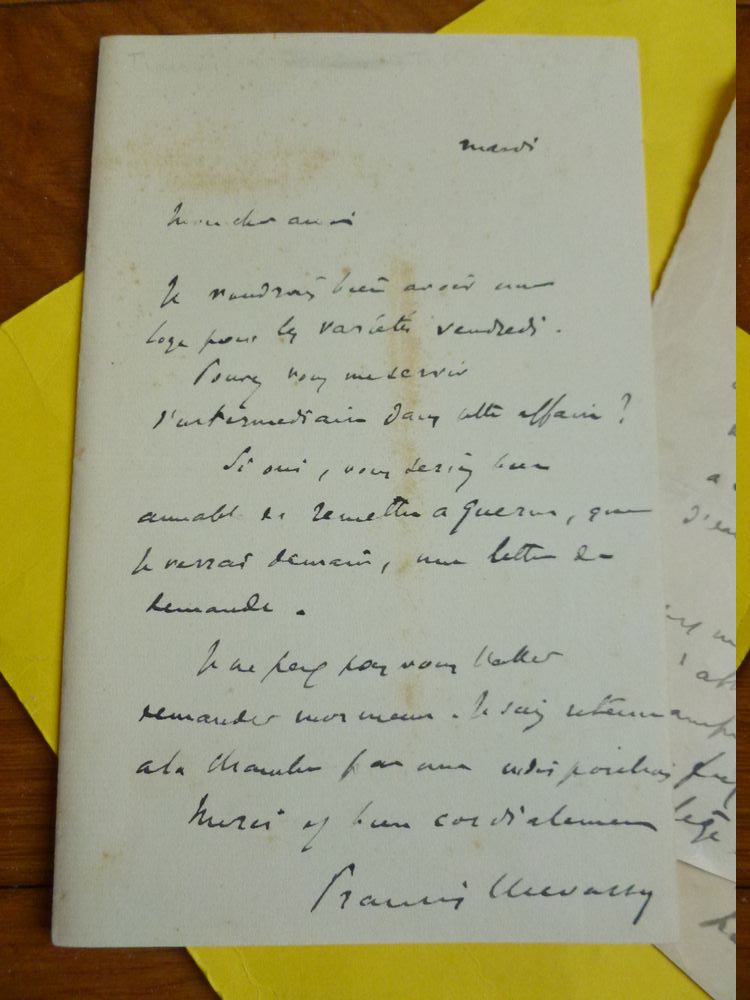 mardi
Mon cher ami
Je voudrais bien avoir une
loge pour les variétés vendredi.
Pouvez vous me servir
d'intermediaire dans cette affaire ?
Si oui, vous seriez bien
aimable de remettre a Guerin, que
je verrai demain, une lettre de
demande.
Je ne peux pas vous l'aller
demander moi meme. Je suis retenu
a la chambre par une indisposition
Merci et bien cordialement
Francis